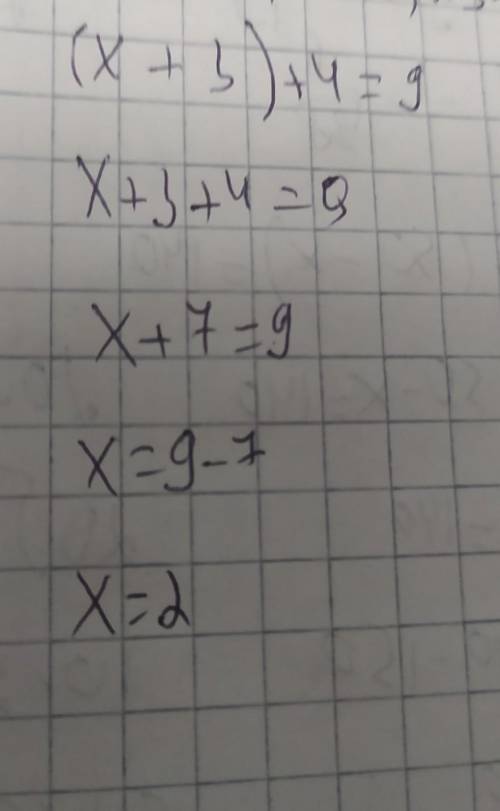 (x + 3) + 4 = 9
x + 3 + 4 = 9
x + 7 = 9
x = 9 - 7
x = 2